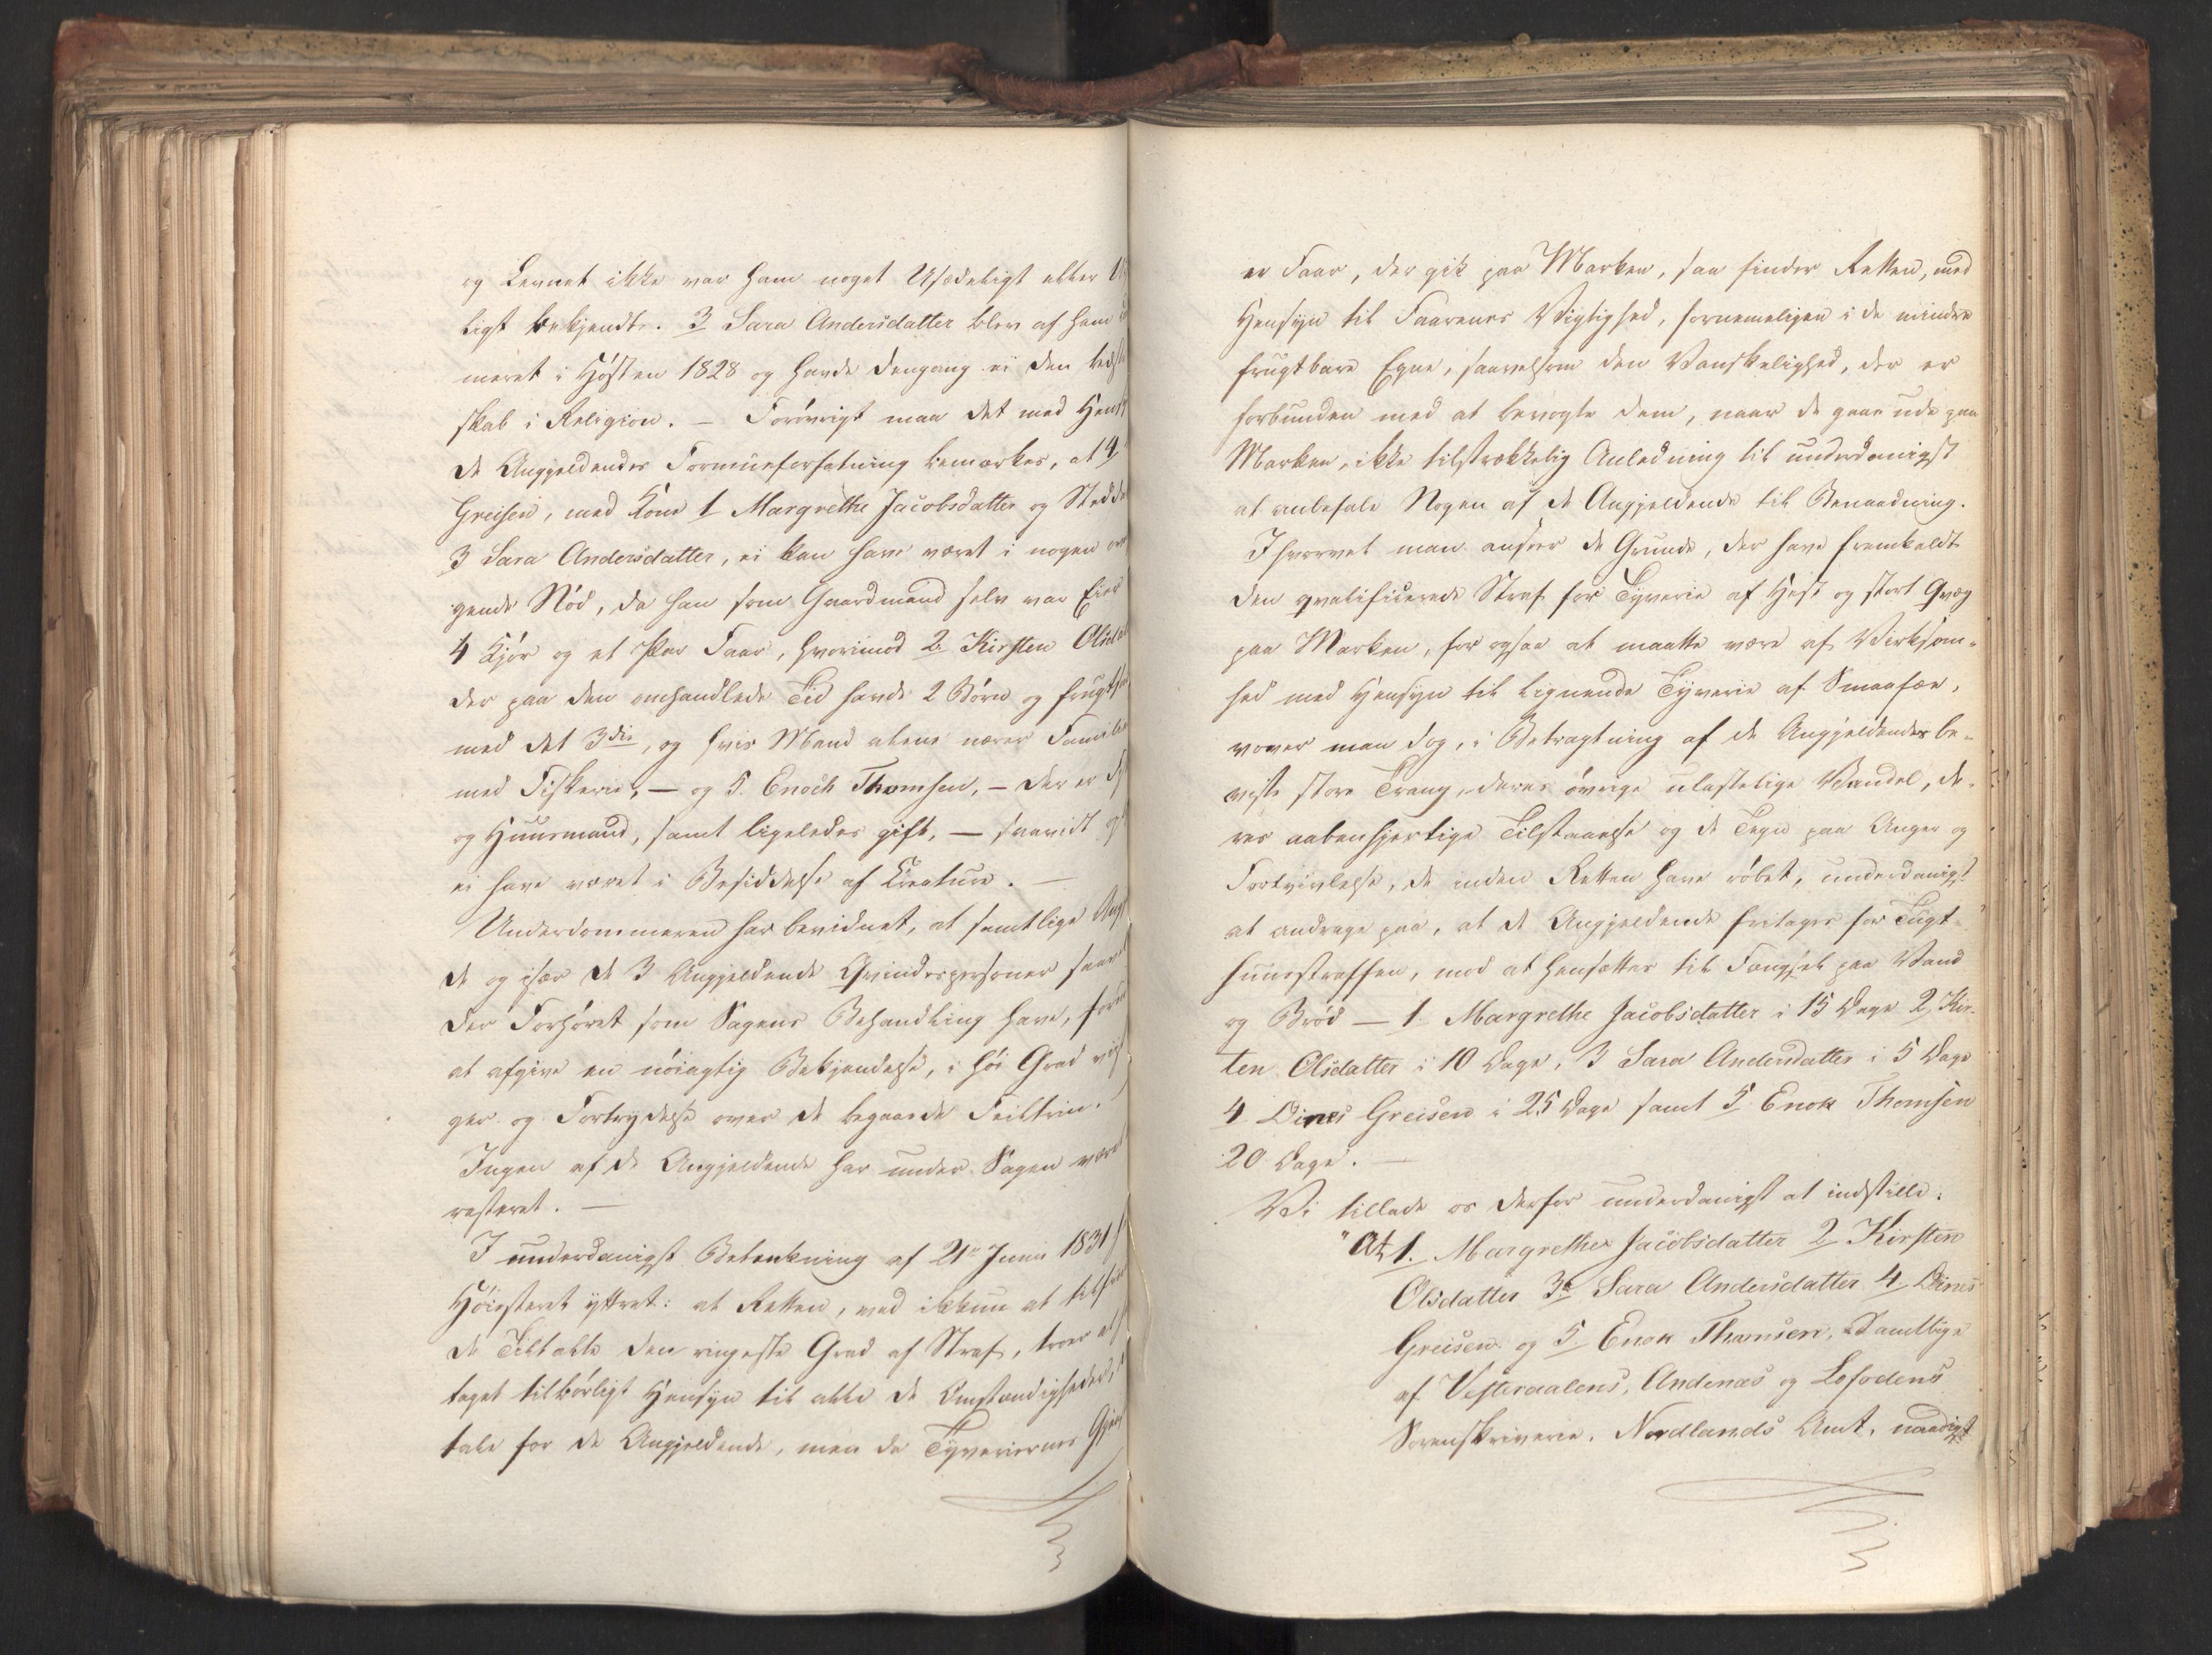 og Levnet ikke var ham noget Usædeligt eller U
ligt bekjendt. 3 Sara Andersdatter blev af ham
meret i Høsten 1828 og havde dengang ei den bedste
skab i Religion. — Forøvrigt maa det med Hensy
de Angjeldendes Formuesforfatning bemærkes, at 4
Greisen, med Kone 1 Margrethe Jacobsdatter og Sted
3 Sara Andersdatter, ei kan have været i nogen
gende Nød, da han som Gaardmand selv var Eier
4 Kjør og et Par Faar, hvorimod 2. Kirsten Olsdat
der paa den omhandlede Tid havde 2 Børn og frugts
med det 3die, og hvis Mand alene nærer Famili
med Fiskerie, — og 5. Enoch Thomsen, — der er
og Huusmand, samt ligeledes gift, — saavidt
ei have været i Besiddelse af Creature. —
Underdommeren har bevidnet, at samtlige Ang
de og især de 3 Angjeldende Qvindespersoner saav
der Forhøret som Sagens Behandling have, foru
at afgive en nøiagtig Bekjendelse, i høi Grad vi
ger og Fortrydelse over de begaaede Feiltrin.
Ingen af de Angjeldende har under Sagen være
resteret. —
I underdanigst Betænkning af 21de Junii 1831
Høiesteret yttret: at Retten, ved ikkun at til
de Tiltalte den ringeste Grad af Straf, troer at
taget tilbørligt Hensyn til alle de Omstændigheder,
tale for de Angjeldende, men da Tyveriernes Gjen
er Faar, der gik paa Marken, saa finder Retten, med
Hensyn til Faarenes Vigtighed, fornemmeligen i de mindre
frugtbare Egne, saavelsom den Vanskelighed, der er
forbunden med at bevogte dem, naar de gaae ude paa
Marken, ikke tilstrækkelig Anledning til underdanigst
at anbefale Nogen af de Angjeldende til Benaadning.
Ihvorvel man anseer de Grunde, der have fremkaldt
den qvalificerede Straf for Tyverie af Hest og stort Qvæg
paa Marken, for ogsaa at maatte være af Virksom-
hed med Hensyn til lignende Tyverie af Smaafæe,
vover man dog, i Betragtning af de Angjeldendes be-
viste store Trang, deres øvrige ulastelige Vandel, de-
res aabenhjertige Tilstaaelse og de Tegn paa Anger og
Fortvivlelse, de inden Retten have røbet, underdanigst
at andrage paa, at de Angjeldende fritages for Tugt-
huusstraffen, mod at hensættes til Fængsel paa Vand
og Brød — 1. Margrethe Jacobsdatter i 15 Dage 2, Kir-
ten Olsdatter i 10 Dage, 3 Sara Andersdatter i 5 Dage
4 Dines Greisen i 25 Dage samt 5 Enok Thomsen
20 Dage. —
Vi tillade os derfor underdanigst at indstille:
"At 1. Margrethe Jacobsdatter 2 Kirsten
Olsdatter 3 Sara Andersdatter 4 Dines
Greisen og 5 Enok Thomsen, Samtlige
af Vesteraalens, Andenæs og Lofodens
Sorenskriverie, Nordlands Amt, naadigst